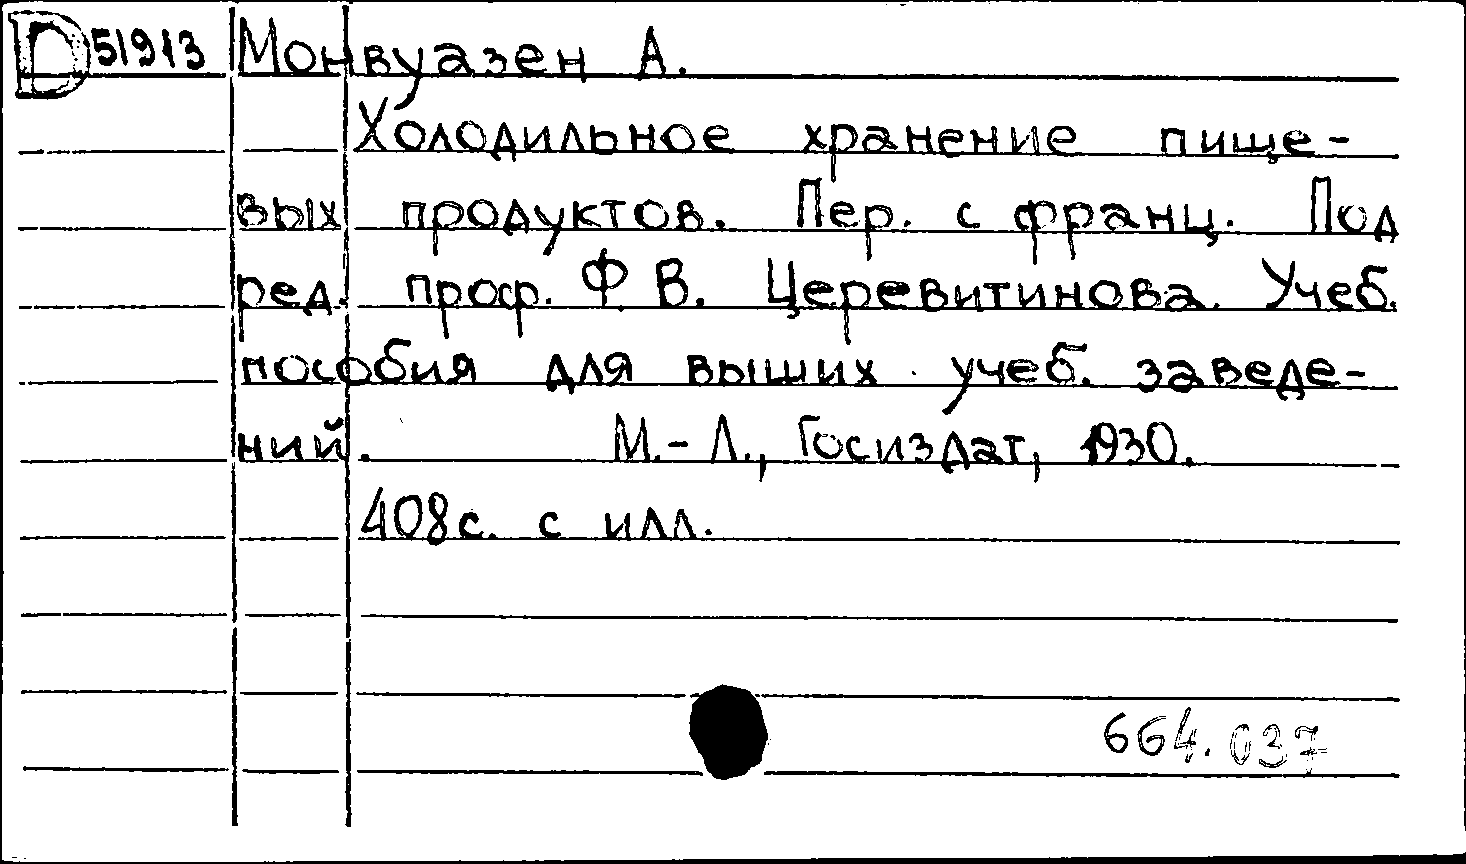 D 51913 Монвуазен А.
Холодильное хранение пище-
вых продуктов. Пер. с франц. Под
ред. проф. Ф В. Церевитинова. Учеб.
пособия для выших учеб. заведе-
ний. М.-Л., Госиздат, 1930.
408с. с илл.
664.037